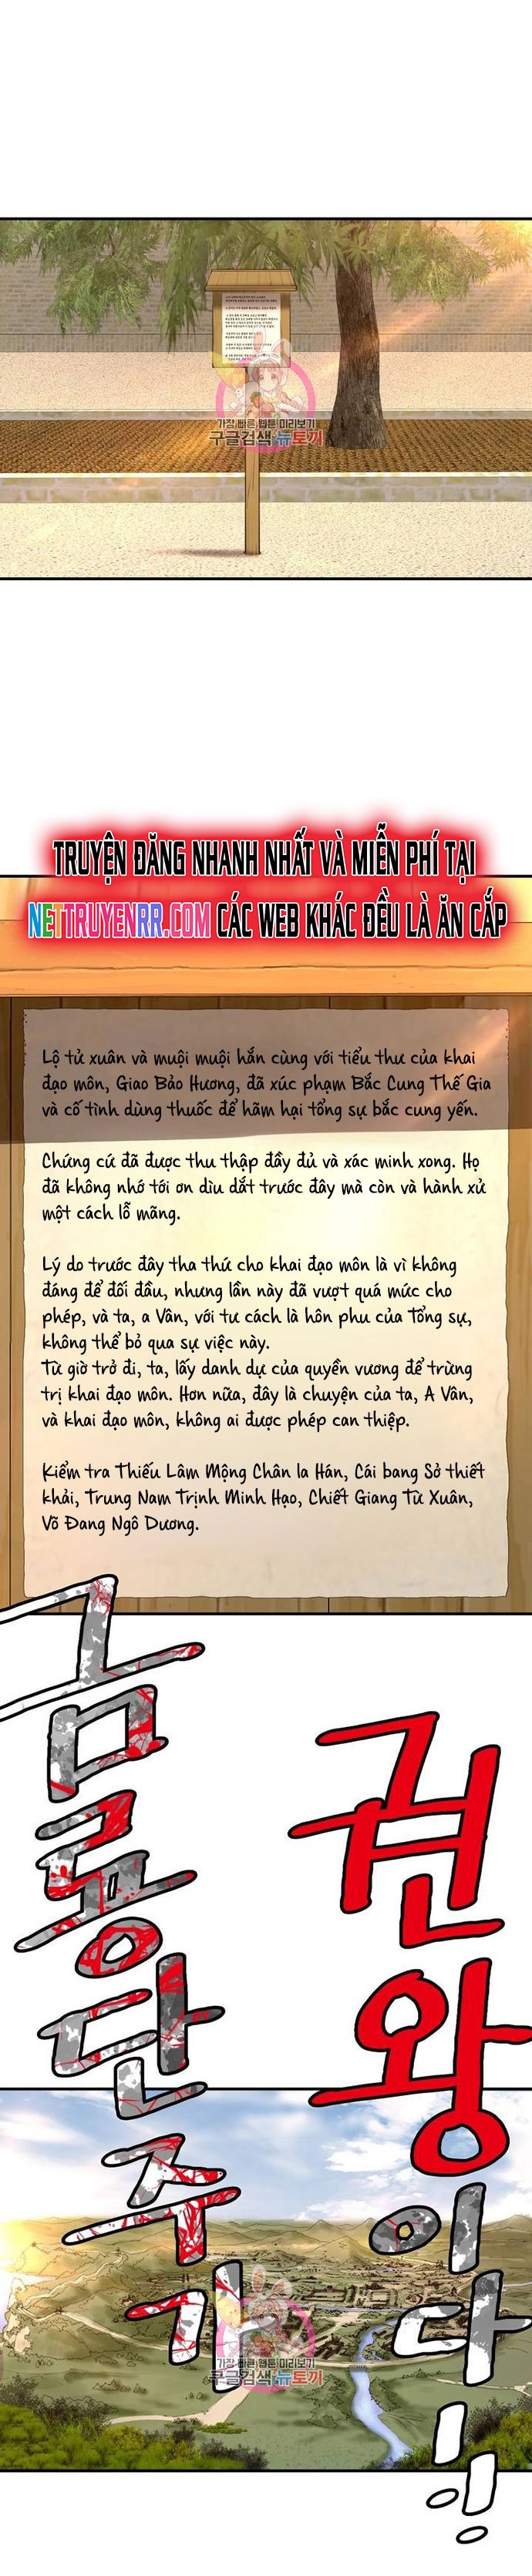 가장 빠른 웹툰 미리보기
구글검색 뉴토끼
TRUYỆN ĐĂNG NHANH NHẤT VÀ MIỄN PHÍ TẠI
NETTRUYENRR.COM CÁC WEB KHÁC ĐỀU LÀ ĂN CẮP
Lộ tử xuân và muội muội hắn cùng với tiểu thư của khai
đạo môn, Giao Bảo Hương, đã xúc phạm Bắc Cung Thế Gia
và cố tình dùng thuốc để hãm hại tổng sự bắc cung yến.
Chứng cứ đã được thu thập đầy đủ và xác minh xong. Họ
đã không nhớ tới ơn dìu dắt trước đây mà còn và hành xử
một cách lỗ mãng.
Lý do trước đây tha thứ cho khai đạo môn là vì không
đáng để đối đầu, nhưng lần này đã vượt quá mức cho
phép, và ta, a Vân, với tư cách là hôn phu của Tổng sự,
không thể bỏ qua sự việc này.
Từ giờ trở đi, ta, lấy danh dự của quyền vương để trừng
trị khai đạo môn. Hơn nữa, đây là chuyện của ta, A Vân,
và khai đạo môn, không ai được phép can thiệp.
Kiểm tra Thiếu Lâm Mộng Chân la Hán, Cái bang Sở thiết
khải, Trung Nam Trịnh Minh Hạo, Chiết Giang Từ Xuân,
Võ Đang Ngô Dương.
권왕이다!
금룡단주가
가장 빠른 웹툰 미리보기
구글검색 뉴토끼